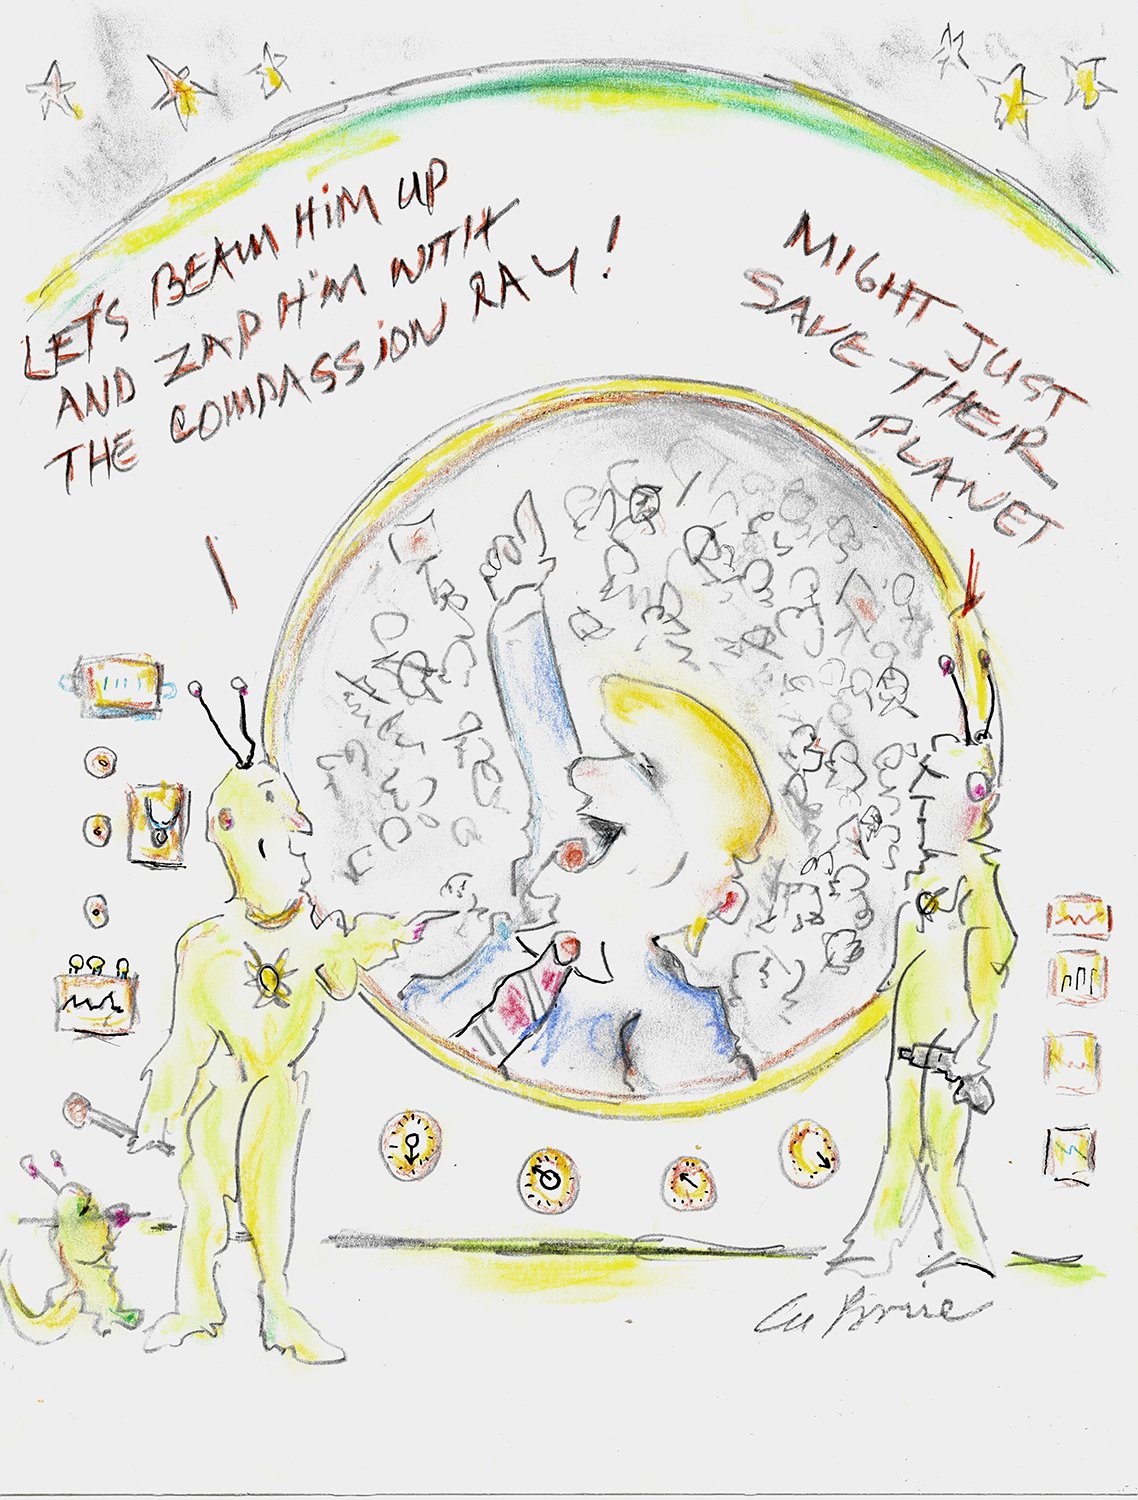 LET'S BEAM HIM UP
AND ZAP HIM WITH
THE COMPASSION RAY!
MIGHT JUST
SAVE THEIR
PLANET